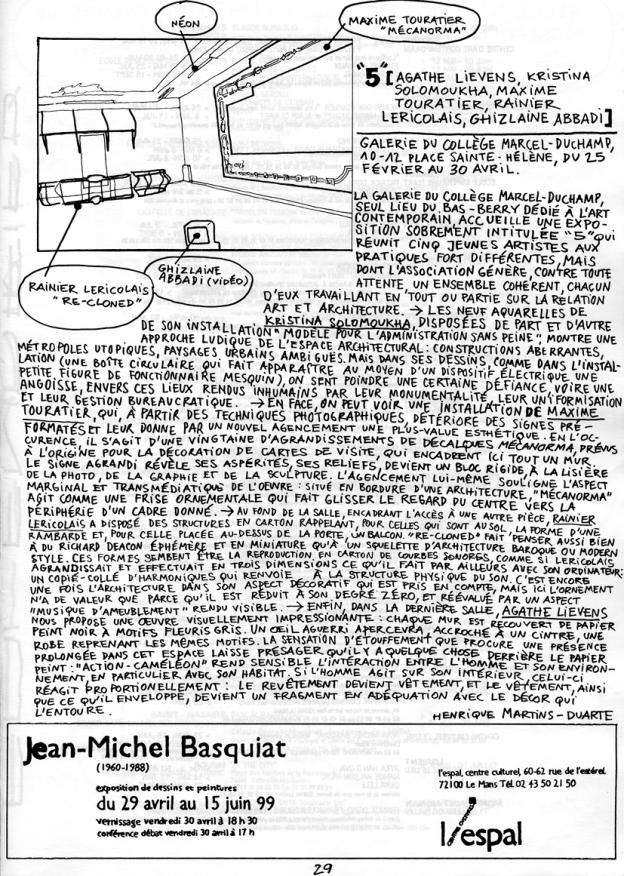 NÉON
MAXIME TOURATIER
"MÉCANORMA"
RAINIER LERICOLAIS
"RE-CLONED"
GHIZLAINE
ABBADI (VIDÉO)
"5" [AGATHE LIEVENS, KRISTINA
SOLOMOUKHA, MAXIME
TOURATIER, RAINIER
LERICOLAIS, GHIZLAINE ABBADI]
GALERIE DU COLLÈGE MARCEL-DUCHAMP,
10-12 PLACE SAINTE-HÉLÈNE, DU 25
FÉVRIER AU 30 AVRIL.
LA GALERIE DU COLLÈGE MARCEL-DUCHAMP,
SEUL LIEU DU BAS-BERRY DÉDIÉ À L'ART
CONTEMPORAIN, ACCUEILLE UNE EXPO-
SITION SOBREMENT INTITULÉE "5" QUI
RÉUNIT CINQ JEUNES ARTISTES AUX
PRATIQUES FORT DIFFÉRENTES, MAIS
DONT L'ASSOCIATION GÉNÈRE, CONTRE TOUTE
ATTENTE, UN ENSEMBLE COHÉRENT, CHACUN
D'EUX TRAVAILLANT EN TOUT OU PARTIE SUR LA RELATION
ART ET ARCHITECTURE. → LES NEUF AQUARELLES DE
KRISTINA SOLOMOUKHA, DISPOSÉES DE PART ET D'AUTRE
DE SON INSTALLATION "MODÈLE POUR L'ADMINISTRATION SANS PEINE", MONTRE UNE
APPROCHE LUDIQUE DE L'ESPACE ARCHITECTURAL : CONSTRUCTIONS ABERRANTES,
MÉTROPOLES UTOPIQUES, PAYSAGES URBAINS AMBIGUËS. MAIS DANS SES DESSINS, COMME DANS L'INSTAL-
LATION (UNE BOÎTE CIRCULAIRE QUI FAIT APPARAÎTRE AU MOYEN D'UN DISPOSITIF ÉLECTRIQUE UNE
PETITE FIGURE DE FONCTIONNAIRE MESQUIN), ON SENT POINDRE UNE CERTAINE DÉFIANCE, VOIRE UNE
ANGOISSE, ENVERS CES LIEUX RENDUS INHUMAINS PAR LEUR MONUMENTALITÉ, LEUR UNIFORMISATION
ET LEUR GESTION BUREAUCRATIQUE. → EN FACE, ON PEUT VOIR UNE INSTALLATION DE MAXIME
TOURATIER, QUI, À PARTIR DES TECHNIQUES PHOTOGRAPHIQUES, DÉTÉRIORE DES SIGNES PRÉ-
FORMATÉS ET LEUR DONNE PAR UN NOUVEL AGENCEMENT UNE PLUS-VALUE ESTHÉTIQUE. EN L'OC-
CURENCE, IL S'AGIT D'UNE VINGTAINE D'AGRANDISSEMENTS DE DÉCALQUES MÉCANORMA, PRÉVUS
À L'ORIGINE POUR LA DÉCORATION DE CARTES DE VISITE, QUI ENCADRENT ICI TOUT UN MUR.
LE SIGNE AGRANDI RÉVÈLE SES ASPÉRITÉS, SES RELIEFS, DEVIENT UN BLOC RIGIDE, À LA LISIÈRE
DE LA PHOTO, DE LA GRAPHIE ET DE LA SCULPTURE. L'AGENCEMENT LUI-MÊME SOULIGNE L'ASPECT
MARGINAL ET TRANSMÉDIATIQUE DE L'ŒUVRE : SITUÉ EN BORDURE D'UNE ARCHITECTURE, "MÉCANORMA"
AGIT COMME UNE FRISE ORNEMENTALE QUI FAIT GLISSER LE REGARD DU CENTRE VERS LA
PÉRIPHÉRIE D'UN CADRE DONNÉ. → AU FOND DE LA SALLE, ENCADRANT L'ACCÈS À UNE AUTRE PIÈCE, RAINIER
LERICOLAIS A DISPOSÉ DES STRUCTURES EN CARTON RAPPELANT, POUR CELLES QUI SONT AU SOL, LA FORME D'UNE
RAMBARDE ET, POUR CELLE PLACÉE AU-DESSUS DE LA PORTE, UN BALCON. "RE-CLONED" FAIT PENSER AUSSI BIEN
À DU RICHARD DEACON ÉPHÉMÈRE ET EN MINIATURE QU'À UN SQUELETTE D'ARCHITECTURE BAROQUE OU MODERN
STYLE. CES FORMES SEMBENT ÊTRE LA REPRODUCTION EN CARTON DE COURBES SONORES, COMME SI LERICOLAIS
AGRANDISSAIT ET EFFECTUAIT EN TROIS DIMENSIONS CE QU'IL FAIT PAR AILLEURS AVEC SON ORDINATEUR:
UN COPIÉ-COLLÉ D'HARMONIQUES QUI RENVOIE À LA STRUCTURE PHYSIQUE DU SON. C'EST ENCORE
UNE FOIS L'ARCHITECTURE DANS SON ASPECT DÉCORATIF QUI EST PRIS EN COMPTE, MAIS ICI L'ORNEMENT
N'A DE VALEUR QUE PARCE QU'IL EST RÉDUIT À SON DEGRÉ ZÉRO, ET RÉÉVALUÉ PAR UN ASPECT
"MUSIQUE D'AMEUBLEMENT" RENDU VISIBLE. → ENFIN, DANS LA DERNIÈRE SALLE, AGATHE LIEVENS
NOUS PROPOSE UNE ŒUVRE VISUELLEMENT IMPRESSIONNANTE : CHAQUE MUR EST RECOUVERT DE PAPIER
PEINT NOIR À MOTIFS FLEURIS GRIS. UN ŒIL AGUERRI APERCEVRA, ACCROCHÉ À UN CINTRE, UNE
ROBE REPRENANT LES MÊMES MOTIFS. LA SENSATION D'ÉTOUFFEMENT QUE PROCURE UNE PRÉSENCE
PROLONGÉE DANS CET ESPACE LAISSE PRÉSAGER QU'IL Y A QUELQUE CHOSE DERRIÈRE LE PAPIER
PEINT : "ACTION-CAMÉLÉON" REND SENSIBLE L'INTÉRACTION ENTRE L'HOMME ET SON ENVIRON-
NEMENT, EN PARTICULIER AVEC SON HABITAT. SI L'HOMME AGIT SUR SON INTÉRIEUR, CELUI-CI
RÉAGIT PROPORTIONELLEMENT : LE REVÊTEMENT DEVIENT VÊTEMENT, ET LE VÊTEMENT, AINSI
QUE CE QU'IL ENVELOPPE, DEVIENT UN FRAGMENT EN ADÉQUATION AVEC LE DÉCOR QUI
L'ENTOURE.
HENRIQUE MARTINS-DUARTE
Jean-Michel Basquiat
(1960-1988)
exposition de dessins et peintures
du 29 avril au 15 juin 99
vernissage vendredi 30 avril à 18 h 30
conférence débat vendredi 30 avril à 17 h
l'espal, centre culturel, 60-62 rue de l'estérel
72100 Le Mans Tél. 02 43 50 21 50
l'espal
29